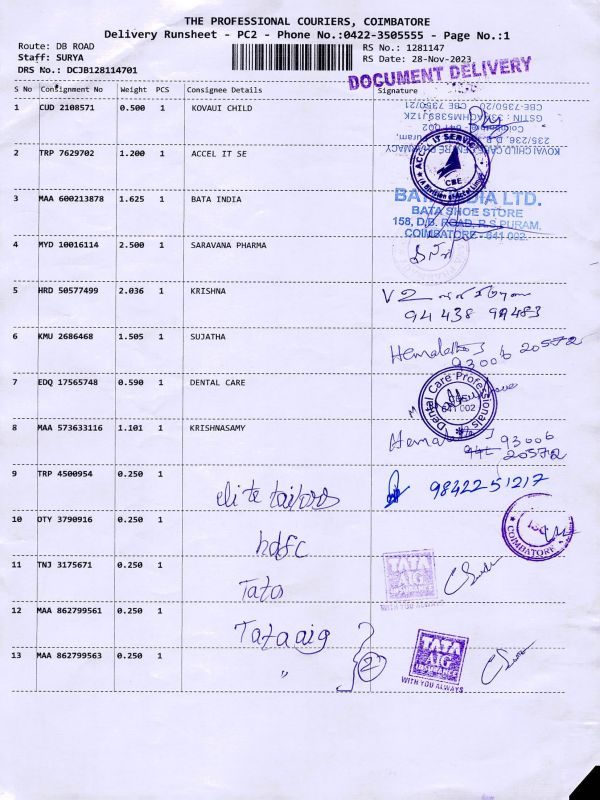 THE PROFESSIONAL COURIERS, COIMBATORE
Delivery Runsheet - PC2 - Phone No.:0422-3505555 - Page No.:1
Route: DB ROAD
Staff: SURYA
DRS No.: DCJB128114701
RS No.: 1281147
RS Date: 28-Nov-2023
DOCUMENT DELIVERY
S No Consignment No Weight PCS Consignee Details Signature
1 CUD 2108571 0.500 1 KOVAUI CHILD
2 TRP 7629702 1.200 1 ACCEL IT SE
ACCEL IT SERVICES
CBE
3 MAA 600213878 1.625 1 BATA INDIA
BATA INDIA LTD.
BATA SHOE STORE
158, D.B. ROAD, R.S PURAM,
COIMBATORE - 641 002.
4 MYD 10016114 2.500 1 SARAVANA PHARMA
5 HRD 50577499 2.036 1 KRISHNA
6 KMU 2686468 1.505 1 SUJATHA
93006 20572
7 EDQ 17565748 0.590 1 DENTAL CARE
Dental Care Professionals
641 002
8 MAA 573633116 1.101 1 KRISHNASAMY
93006
20572
9 TRP 4500954 0.250 1 elite tailors 98422 51217
10 DTY 3790916 0.250 1 hdfc
COIMBATORE
11 TNJ 3175671 0.250 1 Tata
TATA
AIG
WITH YOU ALWAYS
12 MAA 862799561 0.250 1 Tata aig
13 MAA 862799563 0.250 1 " 2
TATA
AIG
INSURANCE
WITH YOU ALWAYS